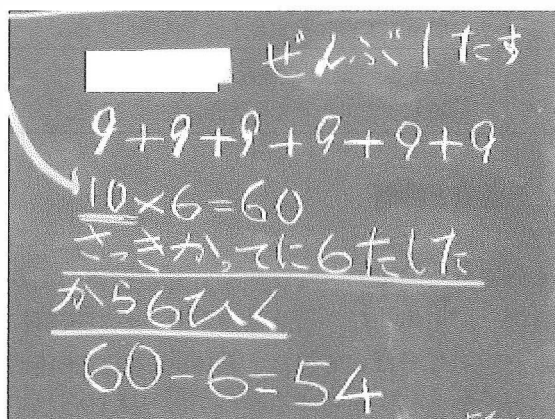 ぜんぶ1たす
9+9+9+9+9+9
10×6=60
さっきかってに6たした
から6ひく
60-6=54